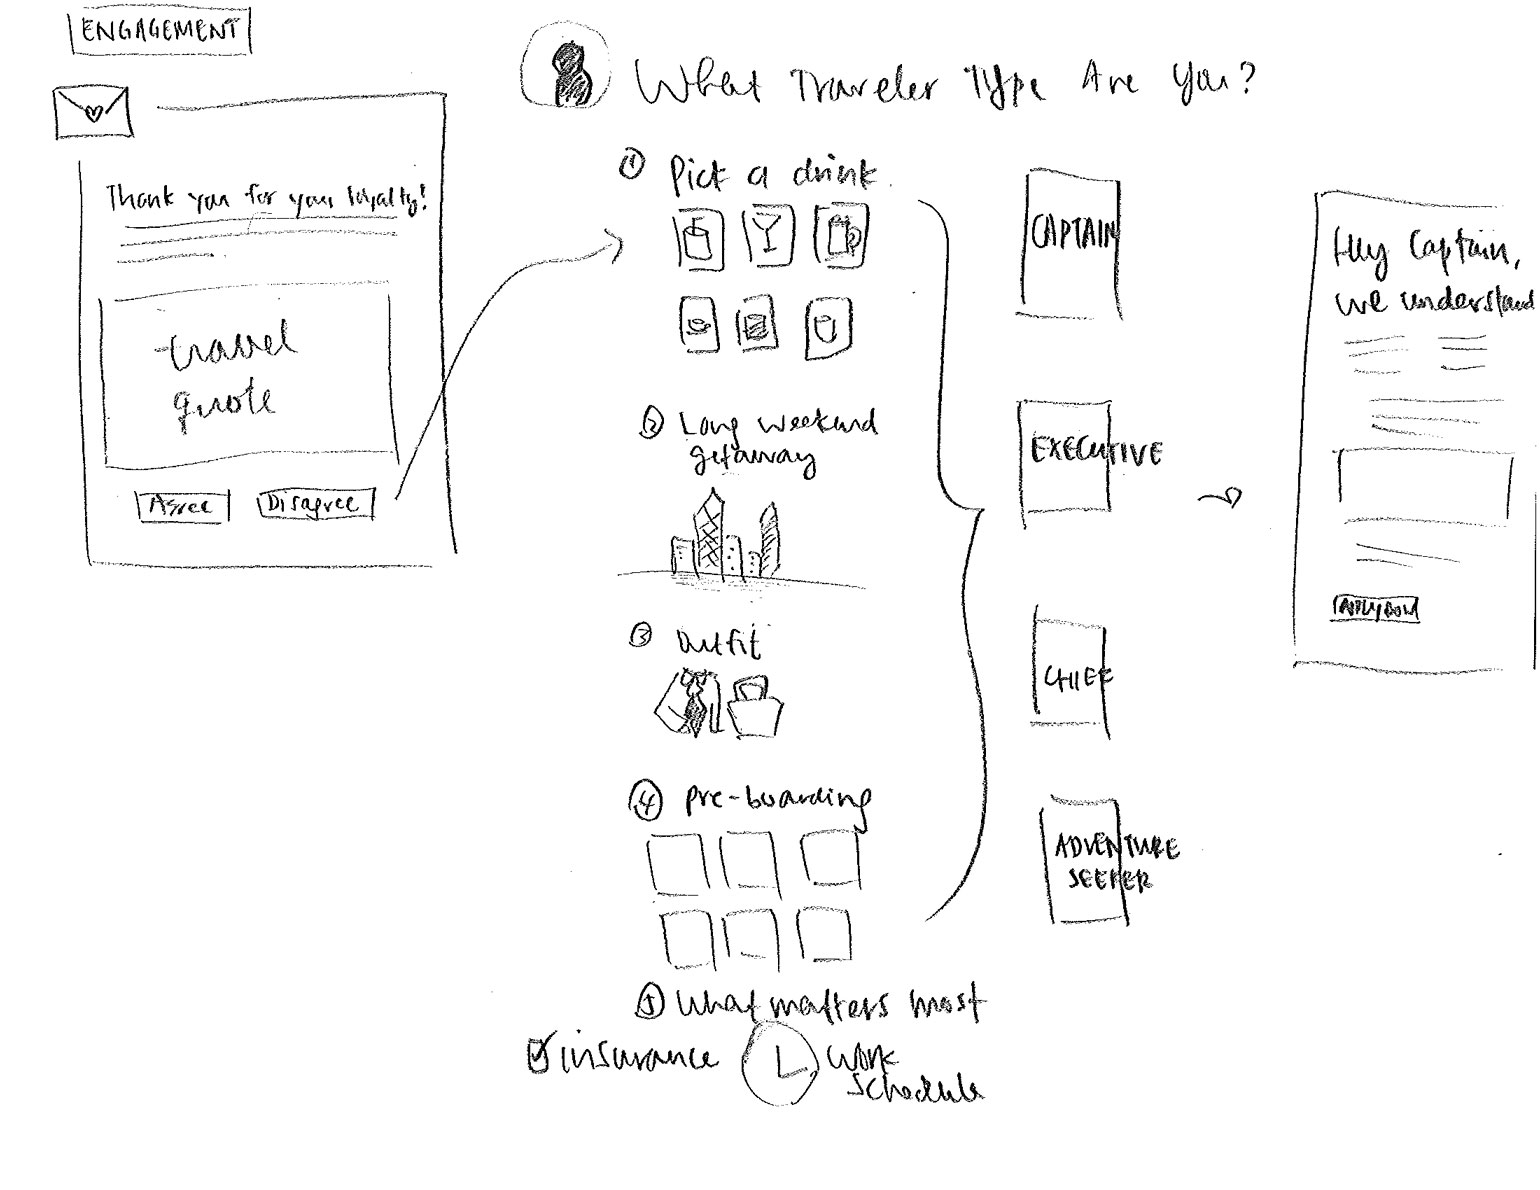 ENGAGEMENT
Thank you for your loyalty!
travel
quote
Agree
Disagree
What Traveler Type Are You?
① Pick a drink.
② Long weekend
getaway
③ Outfit
④ pre-boarding
⑤ What matters most
insurance
work
schedule
CAPTAIN
EXECUTIVE
CHIEF
ADVENTURE
SEEKER
Hey Captain,
we understand
Apply Now